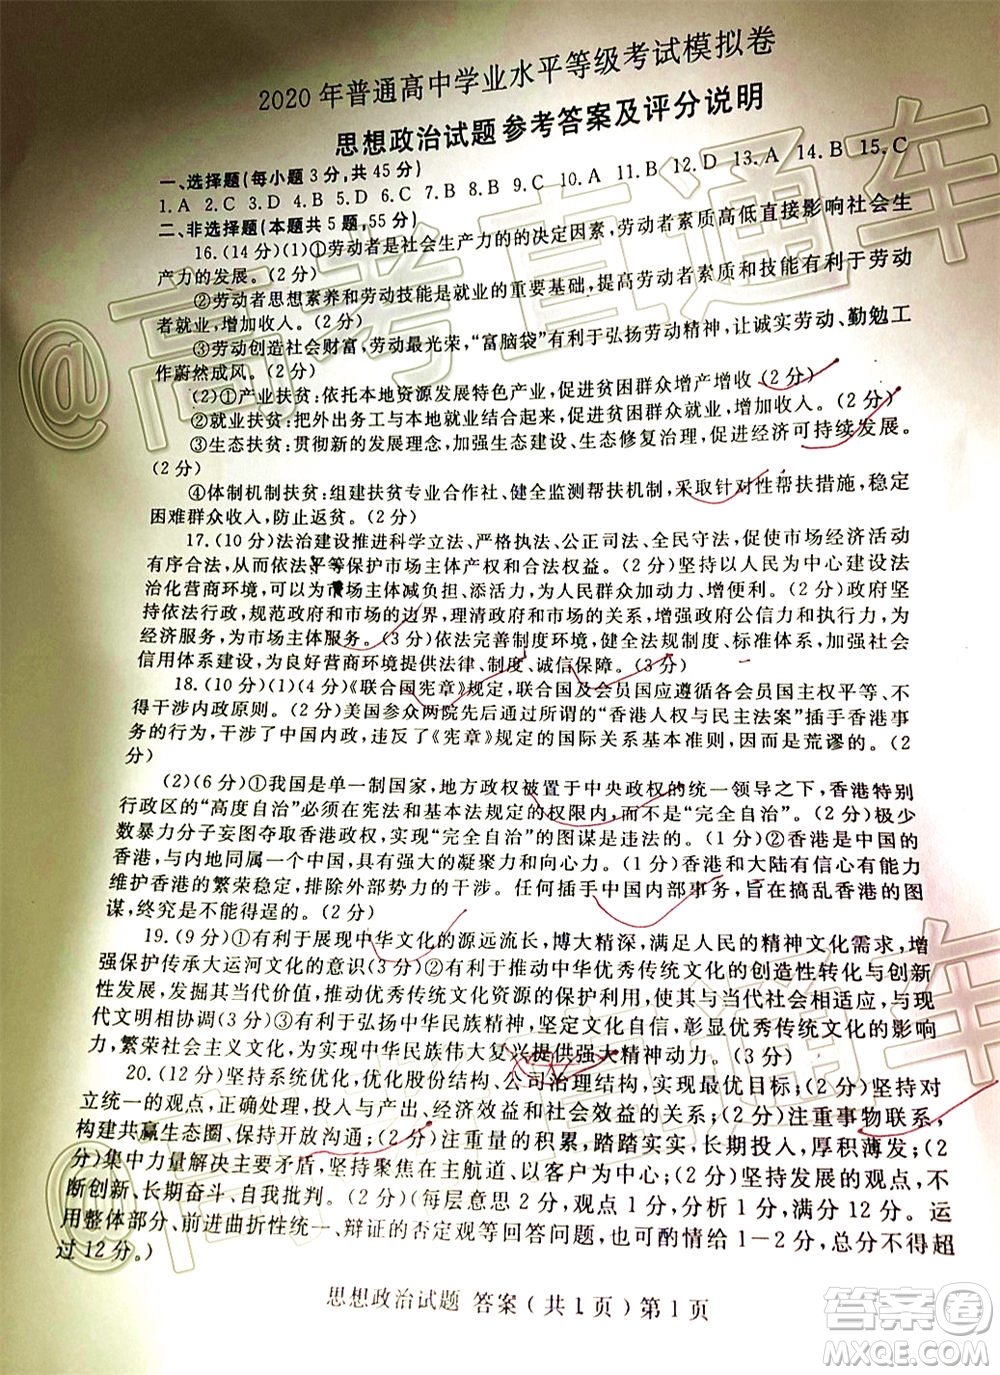 2020年普通高中学业水平等级考试模拟卷
思想政治试题参考答案及评分说明
一、选择题(每小题3分,共45分)
1.A 2.C 3.D 4.B 5.C 6.D 7.B 8.D 9.C 10.A 11.B 12.D 13.A 14.B 15.C
二、非选择题(本题共5题,55分)
16.(14分)(1)①劳动者是社会生产力的的决定因素,劳动者素质高低直接影响社会生
产力的发展。(2分)
②劳动者思想素养和劳动技能是就业的重要基础,提高劳动者素质和技能有利于劳动
者就业,增加收入。(2分)
③劳动创造社会财富,劳动最光荣,“富脑袋”有利于弘扬劳动精神,让诚实劳动、勤勉工
作蔚然成风。(2分)
(2)①产业扶贫:依托本地资源发展特色产业,促进贫困群众增产增收(2分)
②就业扶贫:把外出务工与本地就业结合起来,促进贫困群众就业,增加收入。(2分)
③生态扶贫:贯彻新的发展理念,加强生态建设、生态修复治理,促进经济可持续发展。
(2分)
④体制机制扶贫:组建扶贫专业合作社、健全监测帮扶机制,采取针对性帮扶措施,稳定
困难群众收入,防止返贫。(2分)
17.(10分)法治建设推进科学立法、严格执法、公正司法、全民守法,促使市场经济活动
有序合法,依法平等保护市场主体产权和合法权益。(2分)坚持以人民为中心建设法
治化营商环境,为市场主体减负担、添活力,为人民群众加动力、增便利。(2分)政府坚
持依法行政,规范政府和市场的边界,理清政府和市场的关系,增强政府公信力和执行力,为
经济服务,为市场主体服务。(3分)依法完善制度环境,健全法规制度、标准体系,加强社会
信用体系建设,为良好营商环境提供法律、制度、诚信保障。(3分)
18.(10分)(1)(4分)《联合国宪章》规定,联合国及会员国应遵循各会员国主权平等、不
干涉内政原则。(2分)美国参众两院先后通过所谓的“香港人权与民主法案”插手香港事
务的行为,干涉了中国内政,违反了《宪章》规定的国际关系基本准则,因而是荒谬的。(2
分)
(2)(6分)①我国是单一制国家,地方政权被置于中央政权的统一领导之下,香港特别
行政区的“高度自治”必须在宪法和基本法规定的权限内,而不是“完全自治”。(2分)极少
数暴力分子妄图夺取香港政权,实现“完全自治”的图谋是违法的。(1分)②香港是中国的
香港,与内地同属一个中国,具有强大的凝聚力和向心力。(1分)香港和大陆有信心有能力
维护香港的繁荣稳定,排除外部势力的干涉。任何插手中国内部事务,旨在搞乱香港的图
谋,终究是不能得逞的。(2分)
19.(9分)①有利于展现中华文化的源远流长,博大精深,满足人民的精神文化需求,增
强保护传承大运河文化的意识(3分)②有利于推动中华优秀传统文化的创造性转化与创新
性发展,激活其当代价值,推动优秀传统文化资源的保护利用,使其与当代社会相适应,与现
代文明相协调(3分)③有利于弘扬中华民族精神,坚定文化自信,彰显优秀传统文化的影响
力,繁荣社会主义文化,为实现中华民族伟大复兴提供强大精神动力。(3分)
20.(12分)坚持系统优化,优化股份结构、公司治理结构,实现最优目标;(2分)坚持对
立统一的观点,正确处理,投入与产出、经济效益和社会效益的关系;(2分)注重事物联系,
构建共赢生态圈、保持开放沟通;(2分)注重量的积累,踏踏实实,长期投入,厚积薄发;(2
分)集中力量解决主要矛盾,坚持聚焦在主航道、以客户为中心;(2分)坚持发展的观点,不
断创新、长期奋斗、自我批判。(2分)(每层意思2分,观点1分,分析1分,满分12分。运
用整体部分、前进曲折性统一、辩证的否定观等回答问题,也可酌情给1-2分,总分不得超
过12分。)
思想政治试题 答案(共1页)第1页
@高考直通车
@高考直通车
答案卷
MXQE.COM